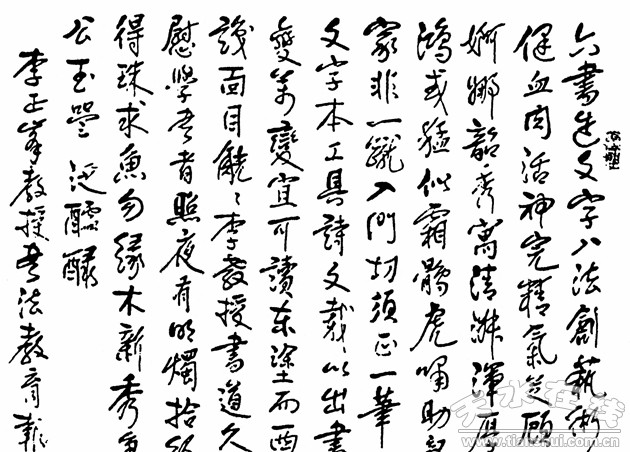 六書造文字八法創藝術
健血肉活神完精氣足顧
婀娜韶秀寓清淑渾厚
鴻或猛似霜鶻虎嘯助
家非一蹴入門切須正一筆
文字本工具詩文載以出書
變萬變宜可讀東塗而西
識面目觥觥李教授書道久
慰學書者照夜有明燭拾級
得珠求魚勿緣木新秀
公玉壘泛醽醁
李正峯教授書法教育報
天水在线
www.tianshui.com.cn